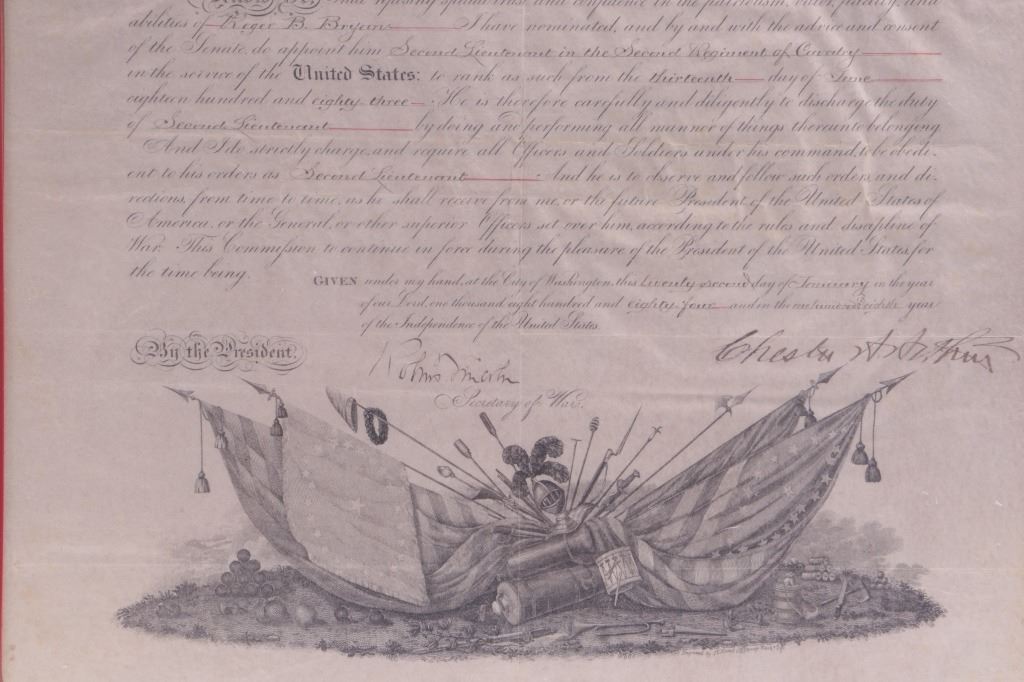 Know Ye, That reposing special trust and confidence in the patriotism, valor, fidelity, and
abilities of Roger B. Bryan I have nominated, and by and with the advice and consent
of the Senate, do appoint him Second Lieutenant in the Second Regiment of Cavalry
in the service of the United States: to rank as such from the thirteenth day of June
eighteen hundred and eighty three. He is therefore carefully and diligently to discharge the duty
of Second Lieutenant by doing and performing all manner of things thereunto belonging.
And I do strictly charge, and require all Officers and Soldiers under his command, to be obedi-
ent to his orders as Second Lieutenant. And he is to observe and follow such orders, and di-
rections from time to time, as he shall receive from me, or the future President of the United States of
America, or the General, or other superior Officers set over him, according to the rules and discipline of
War. This Commission to continue in force during the pleasure of the President of the United States, for
the time being.
GIVEN under my hand, at the City of Washington, this twenty second day of January in the year
of our Lord, one thousand eight hundred and eighty four and in the one hundred eighth year
of the Independence of the United States.
By the President:
Chester A Arthur
Robert T Lincoln
Secretary of War.